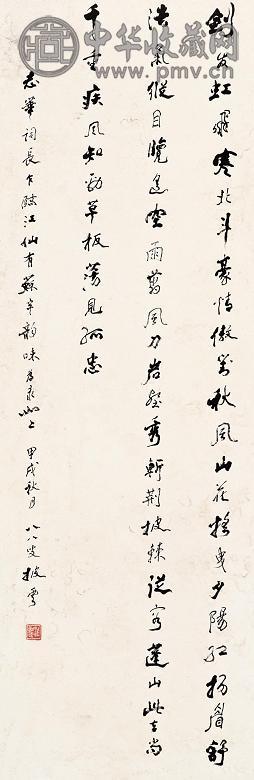 中华收藏网
www.pmv.cn
劍发虹霓寒北斗豪情傲对秋風山花摇曳夕陽红扬眉舒
浩氣縱目曉遥空雨剪風刀岩壑秀斬荆披棘從容蓬山此去尚
千重疾風知勁草板蕩見孤忠
志華詞長作臨江仙有蘇辛韵味为录如上 甲戌秋月 八八叟披雲